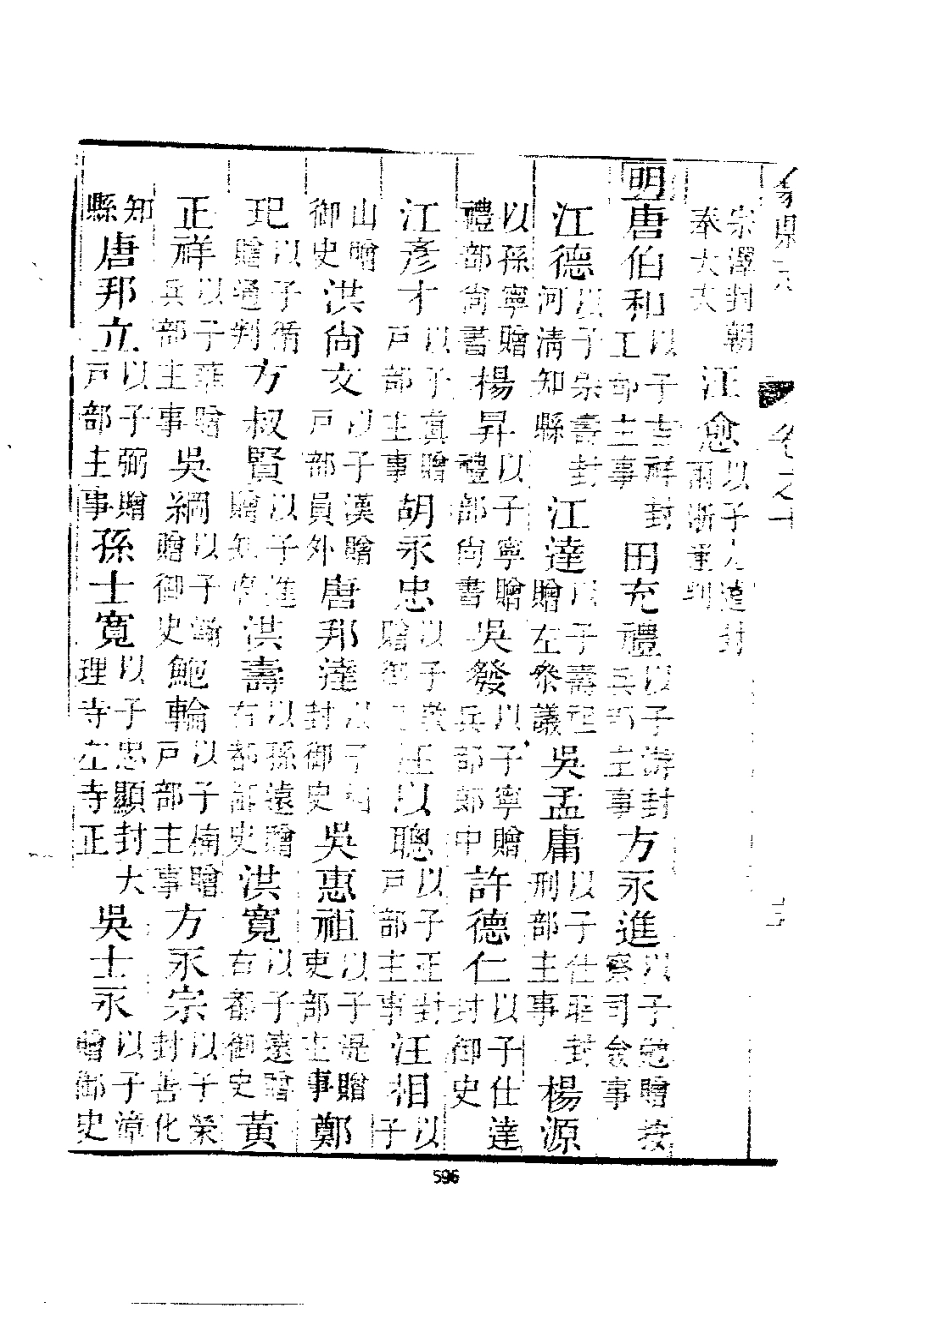 卷之十
宗澤封朝奉大夫 汪愈以子人達封兩浙運判
明唐伯和以子吉祥封工部主事 田充禮以子游封兵部主事 方永進以子勉贈按察司僉事
江德以子榮壽封河清知縣 江達以子壽贈左叅議 吳孟庸以子仕昭封刑部主事 楊源
以孫寧贈禮部尚書 楊昇以子寧贈禮部尚書 吳發以子寧贈兵部郎中 許德仁以子仕達封御史
江彥才以子真贈戶部主事 胡永忠以子敬贈御史 汪以聰以子正封戶部主事 汪相以子
山贈御史 洪尚文以子漢贈戶部員外 唐邦達以子相封御史 吳惠祖以子湜贈吏部主事 鄭
玘以子循贈通判 方叔賢以子進贈知縣 洪壽以孫遠贈右都御史 洪寬以子遠贈右都御史 黃
正祥以子華贈兵部主事 吳綱以子瀚贈御史 鮑輪以子楠贈戶部主事 方永宗以子榮封善化
知縣 唐邦立以子弼贈戶部主事 孫士寬以子忠顯封大理寺左寺正 吳士永以子漳贈御史
596